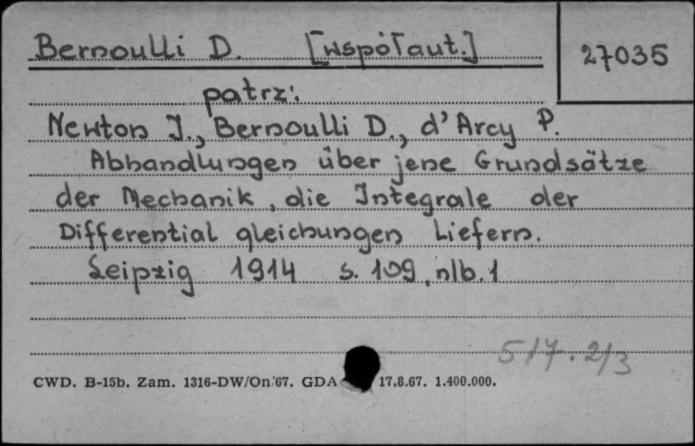 Bernoulli D. [współaut.]
27035
patrz:
Newton I., Bernoulli D., d'Arcy P.
Abhandlungen über jene Grundsätze
der Mechanik, die Integrale der
Differential gleichungen Liefern.
Leipzig 1914 s. 109, nlb. 1
517.2/3
CWD. B-15b. Zam. 1316-DW/On/67. GDA 17.8.67. 1.400.000.